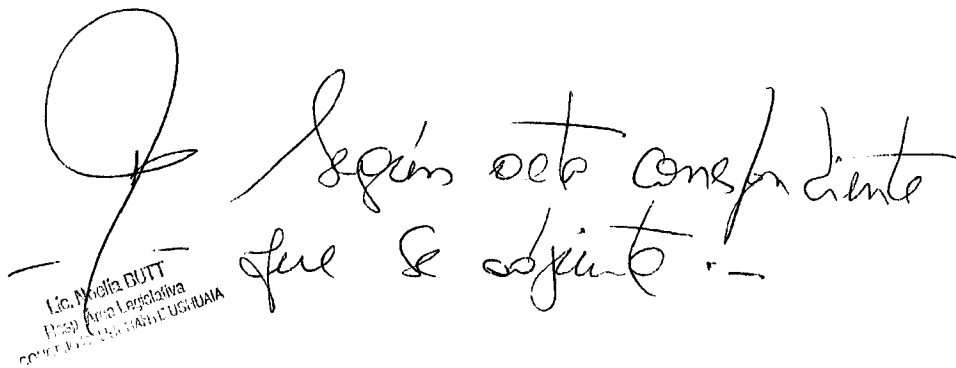 Según acta correspondiente
que se adjunta.-
Lic. Noelia BUTT
Resp. Area Legislativa
CONCEJO DELIBERANTE USHUAIA